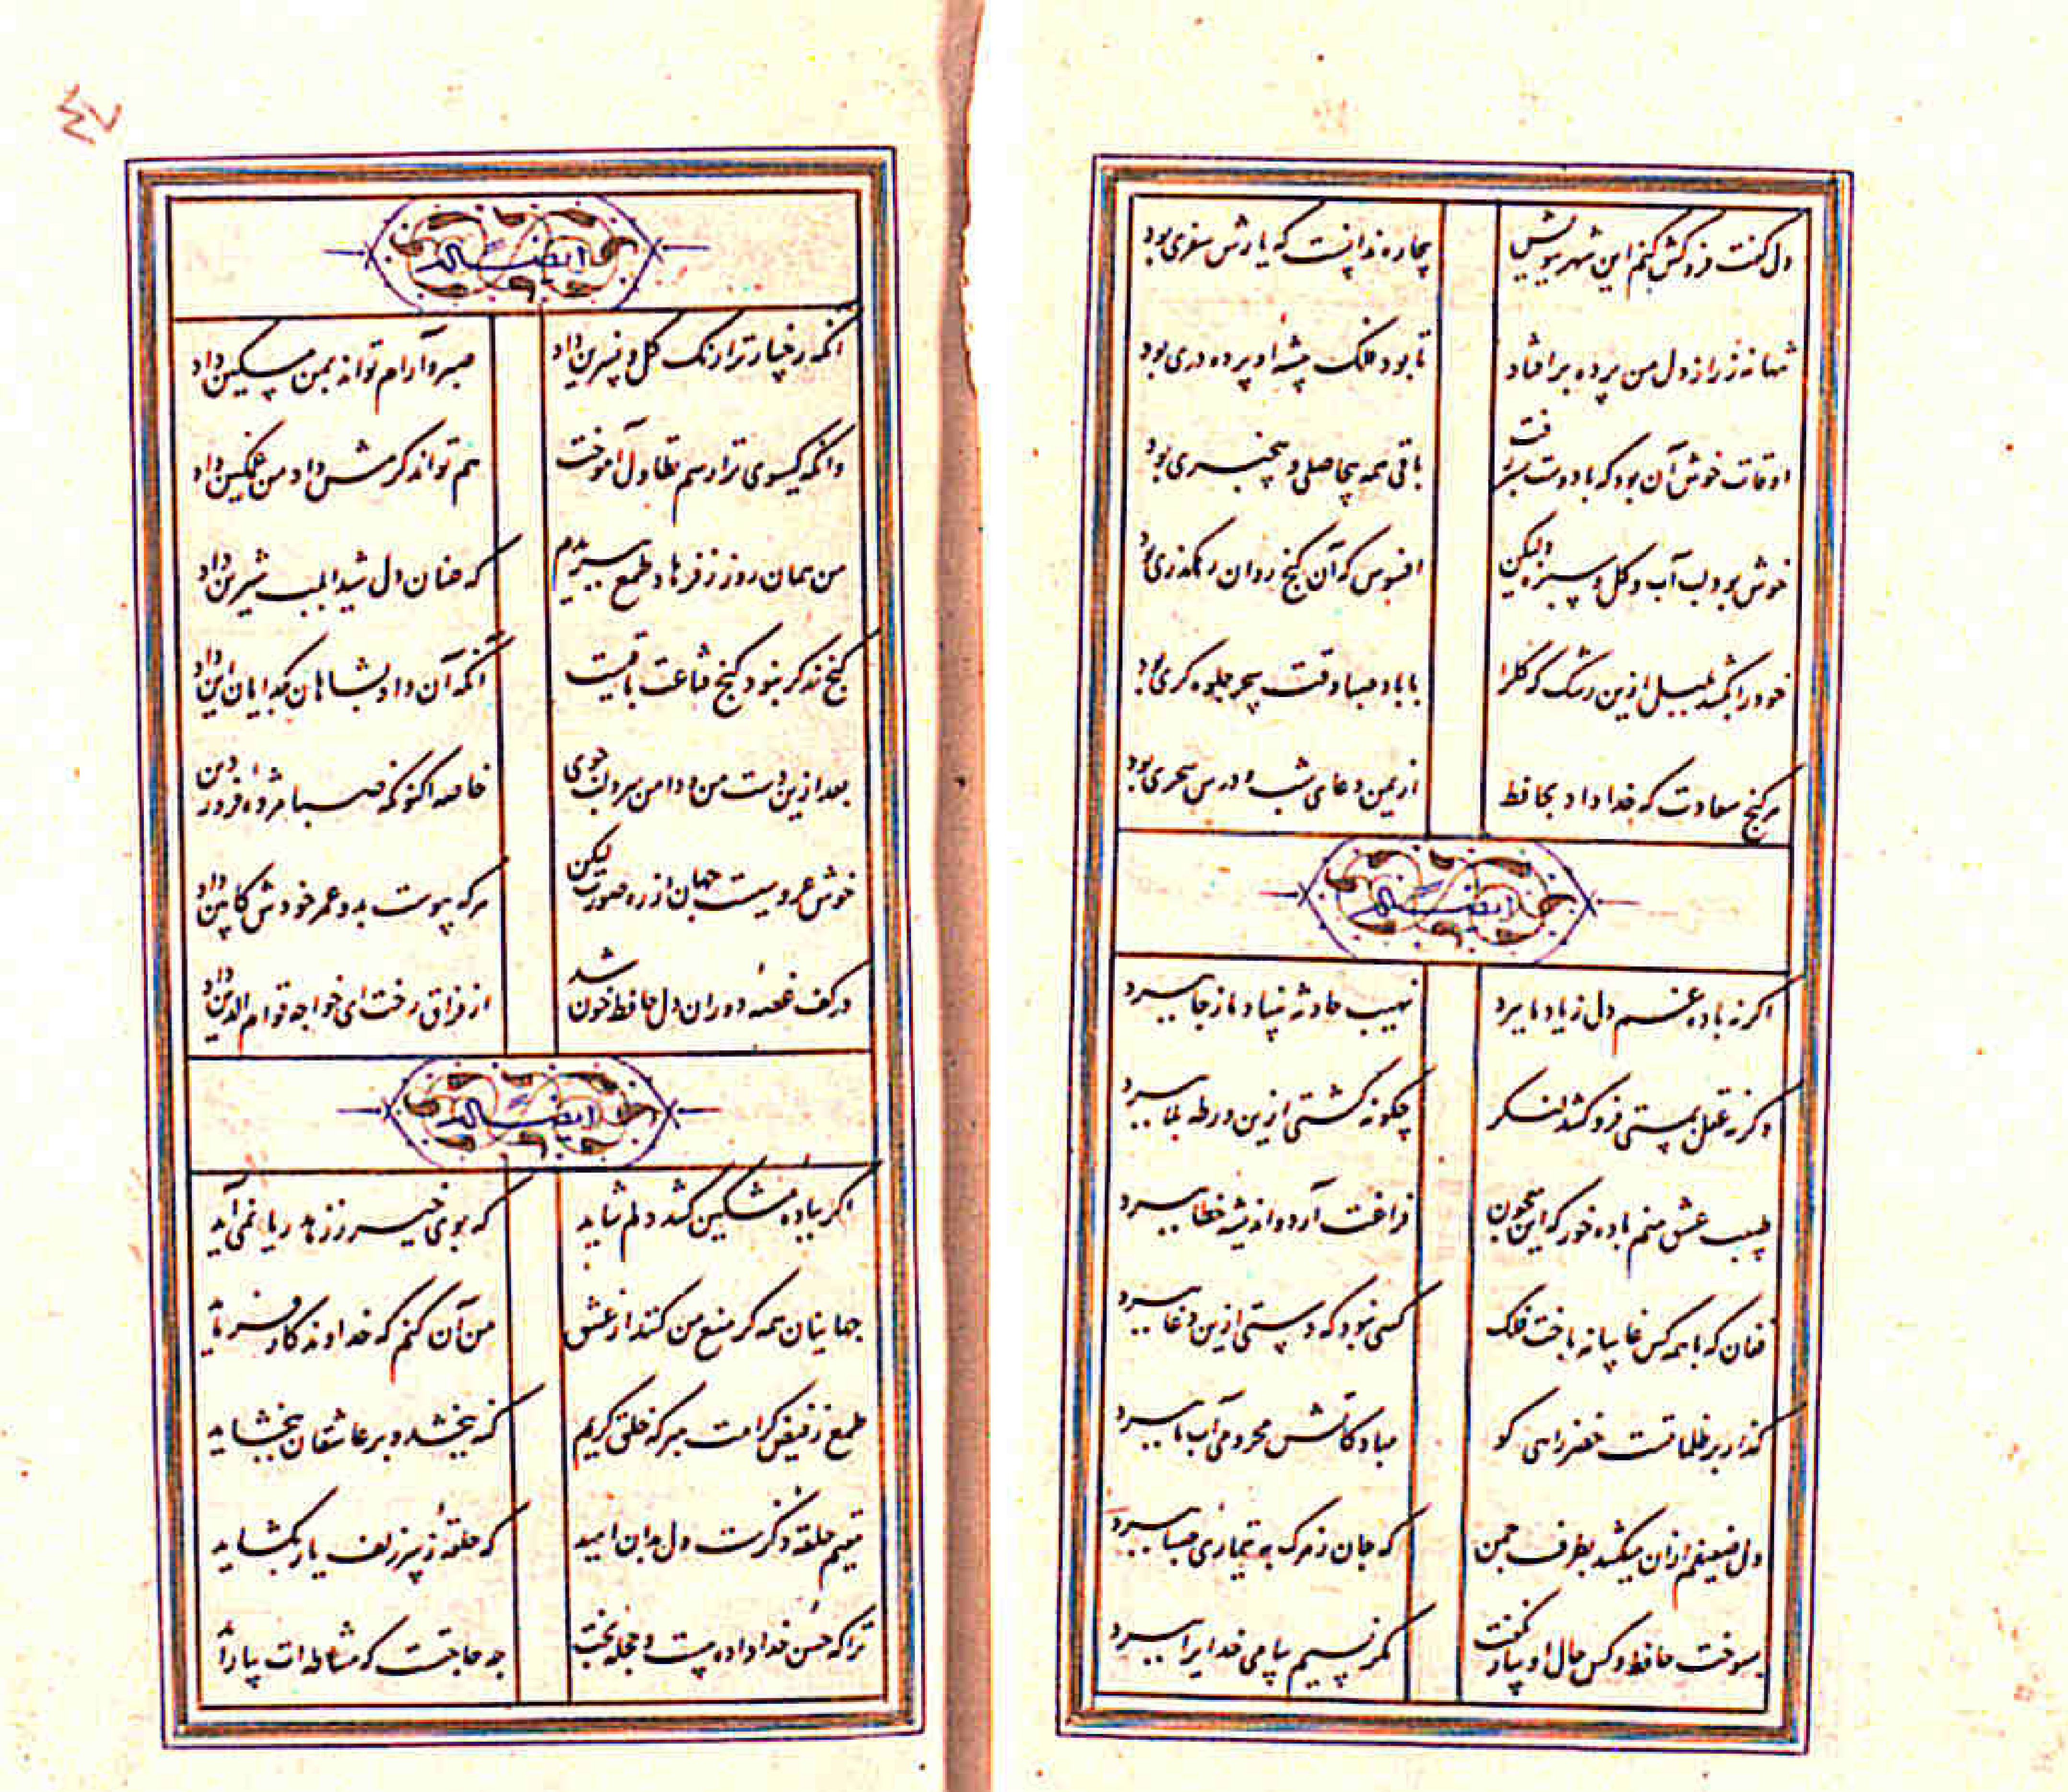 دل گفت فروکش کنم این شهر ببویش
بیچاره ندانست که یارش سفری بود
تنها نه ز راز دل من پرده برافتاد
تا بود فلک پیشه او پرده دری بود
اوقات خوش آن بود که با دوست بسر رفت
باقی همه بیحاصلی و بیخبری بود
خوش بود لب آب و گل و سبزه ولیکن
افسوس که آن گنج روان رهگذری بود
خود را بکشد بلبل ازین رشک که گل را
با باد صبا وقت سحر جلوه کری بود
هر گنج سعادت که خدا داد بحافظ
از یمن دعای شب و درس سحری بود
ایضاً له
اگر نه باده غم دل ز یاد ما ببرد
نهیب حادثه بنیاد ما ز جا ببرد
وگر نه عقل بمستی فروکشد لنگر
چگونه کشتی ازین ورطه بلا ببرد
طبیب عشق منم باده خور که این معجون
فراغت آرد و اندیشه خطا ببرد
فغان که با همه کس غایبانه باخت فلک
کسی نبود که دستی ازین دغا ببرد
گذار بر ظلماتست خضر راهی کو
مباد کاتش محرومی آب ما ببرد
دل ضعیفم ازان میکشد بطرف چمن
که جان ز مرگ به تیماری صبا ببرد
بسوخت حافظ و کس حال او بیار نگفت
مگر نسیم پیامی خدایرا ببرد
٤٧
ایضاً له
آنکه رخسار ترا رنک گل و نسرین داد
صبر و آرام تواند بمن مسکین داد
وانکه گیسوی ترا رسم تطاول آموخت
هم تواند کرمش داد من غمگین داد
من همان روز ز فرهاد طمع ببریدم
که عنان دل شیدا بلب شیرین داد
گنج زر گر نبود کنج قناعت باقیست
آنکه آن داد بشاهان بگدایان این داد
بعد ازین دست من و دامن سرو و لب جوی
خاصه اکنون که صبا مژده فروردین داد
خوش عروسیست جهان از ره صورت لیکن
هر که پیوست بدو عمر خودش کابین داد
در کف غصه دوران دل حافظ خون شد
از فراق رخت ای خواجه قوام الدین داد
ایضاً له
اگر بباده مشکین کشد دلم شاید
که بوی خیر ز زهد ریا نمی آید
جهانیان همه گر منع من کنند از عشق
من آن کنم که خداوندگار فرماید
طمع ز فیض کرامت مبر که خلق کریم
گنه ببخشد و بر عاشقان ببخشاید
مقیم حلقه ذکرست دل بدان امید
که حلقه ز سر زلف یار بگشاید
ترا که حسن خداداده هست و حجله بخت
چه حاجتست که مشاطه ات بیاراید